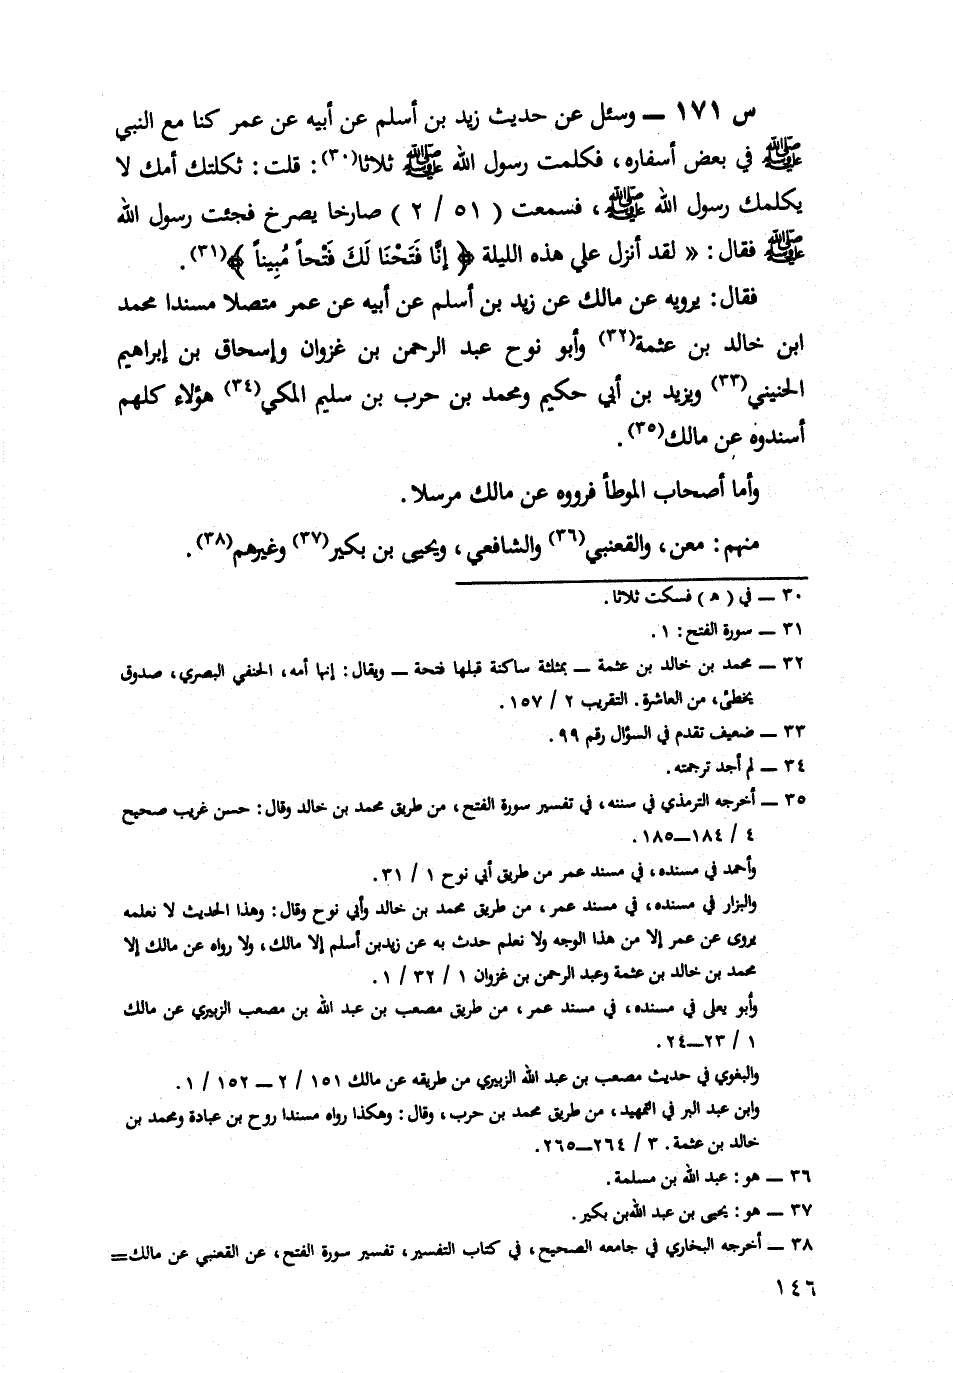 س ١٧١ — وسئل عن حديث زيد بن أسلم عن أبيه عن عمر كنا مع النبي
ﷺ في بعض أسفاره، فكلمت رسول الله ﷺ ثلاثا(٣٠): قلت: ثكلتك أمك لا
يكلمك رسول الله ﷺ، فسمعت (٥١ / ٢) صارخا يصرخ فجئت رسول الله
ﷺ فقال: « لقد أنزل علي هذه الليلة ﴿ إِنَّا فَتَحْنَا لَكَ فَتْحاً مُبِيناً ﴾(٣١).
فقال: يرويه عن مالك عن زيد بن أسلم عن أبيه عن عمر متصلا مسندا محمد
ابن خالد بن عثمة(٣٢) وأبو نوح عبد الرحمن بن غزوان وإسحاق بن إبراهيم
الحنيني(٣٣) ويزيد بن أبي حكيم ومحمد بن حرب بن سليم المكي(٣٤) هؤلاء كلهم
أسندوه عن مالك(٣٥).
وأما أصحاب الموطأ فرووه عن مالك مرسلا.
منهم: معن، والقعنبي(٣٦) والشافعي، ويحيى بن بكير(٣٧) وغيرهم(٣٨).
٣٠ — في (ﻫ) فسكت ثلاثا.
٣١ — سورة الفتح: ١.
٣٢ — محمد بن خالد بن عثمة — بمثلثة ساكنة قبلها فتحة — ويقال: إنها أمه، الحنفي البصري، صدوق
يخطئ، من العاشرة. التقريب ٢ / ١٥٧.
٣٣ — ضعيف تقدم في السؤال رقم ٩٩.
٣٤ — لم أجد ترجمته.
٣٥ — أخرجه الترمذي في سننه، في تفسير سورة الفتح، من طريق محمد بن خالد وقال: حسن غريب صحيح
٤ / ١٨٤—١٨٥.
وأحمد في مسنده، في مسند عمر من طريق أبي نوح ١ / ٣١.
والبزار في مسنده، في مسند عمر، من طريق محمد بن خالد وأبي نوح وقال: وهذا الحديث لا نعلمه
يروى عن عمر إلا من هذا الوجه ولا نعلم حدث به عن زيدبن أسلم إلا مالك، ولا رواه عن مالك إلا
محمد بن خالد بن عثمة وعبد الرحمن بن غزوان ١ / ٣٢ / ١.
وأبو يعلى في مسنده، في مسند عمر، من طريق مصعب بن عبد الله بن مصعب الزبيري عن مالك
١ / ٢٣—٢٤.
والبغوي في حديث مصعب بن عبد الله الزبيري من طريقه عن مالك ١٥١ / ٢ — ١٥٢ / ١.
وابن عبد البر في التمهيد، من طريق محمد بن حرب، وقال: وهكذا رواه مسندا روح بن عبادة ومحمد بن
خالد بن عثمة. ٣ / ٢٦٤—٢٦٥.
٣٦ — هو: عبد الله بن مسلمة.
٣٧ — هو: يحيى بن عبد اللهبن بكير.
٣٨ — أخرجه البخاري في جامعه الصحيح، في كتاب التفسير، تفسير سورة الفتح، عن القعنبي عن مالك=
١٤٦